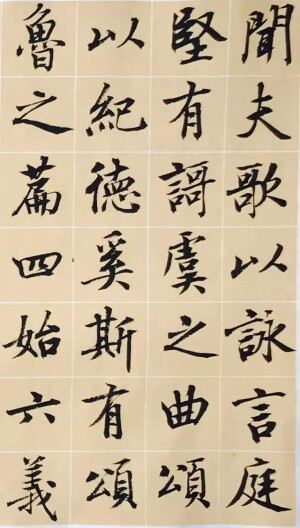 聞夫歌以詠言庭
堅有謌虞之曲頌
以紀德奚斯有頌
魯之篇四始六義